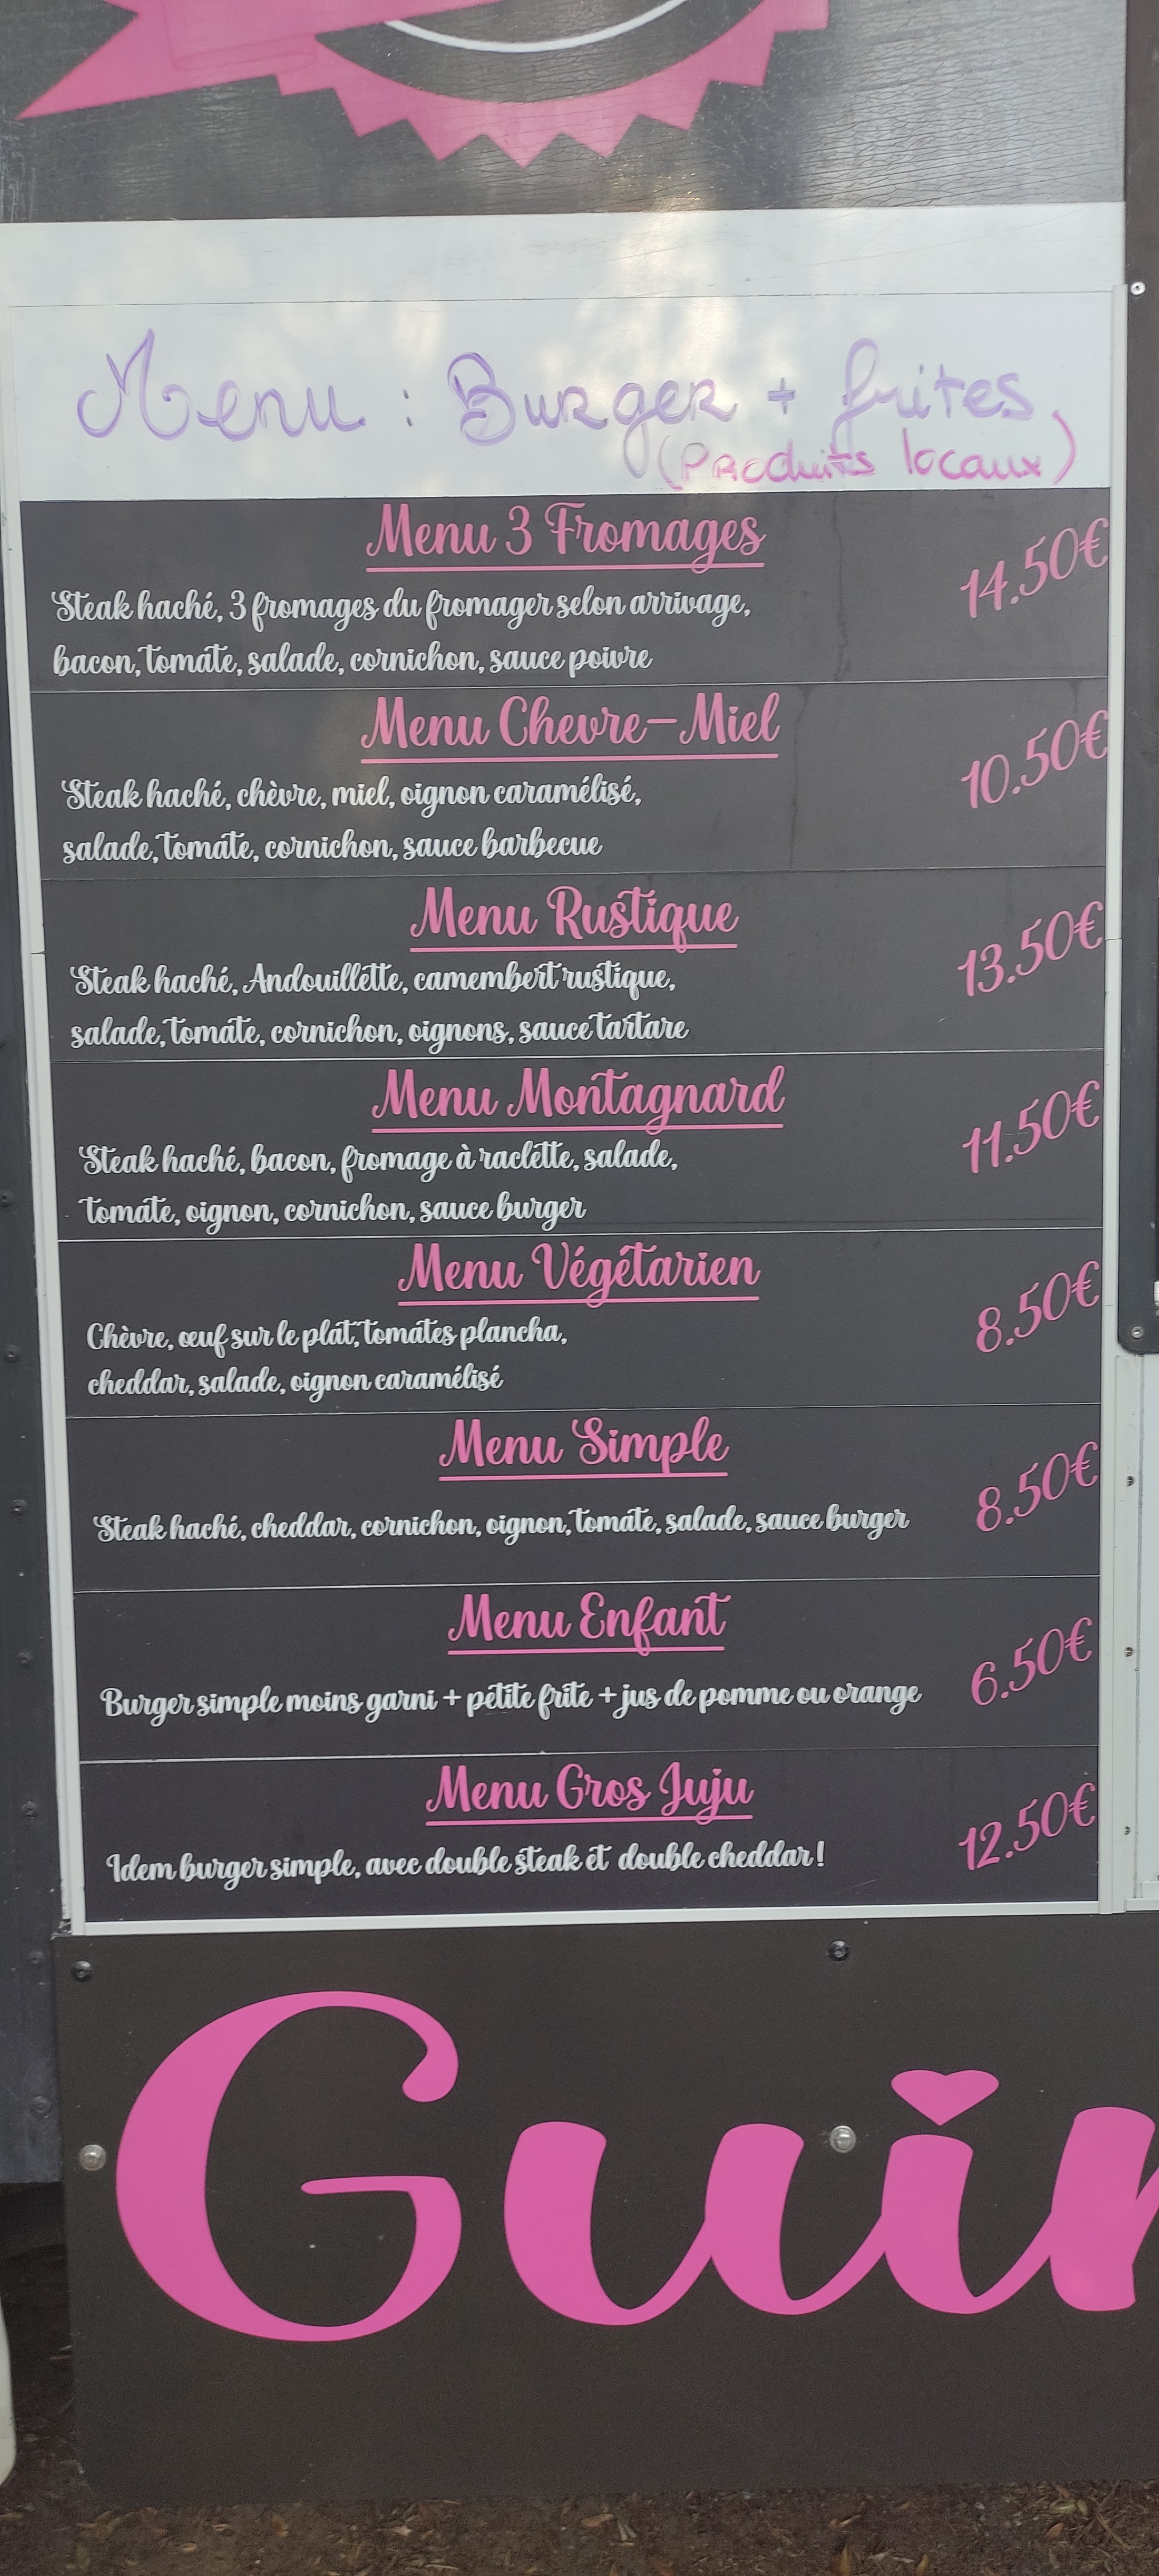 Menu : Burger + frites
(Produits locaux)
Menu 3 Fromages
14.50€
Steak haché, 3 fromages du fromager selon arrivage,
bacon, tomate, salade, cornichon, sauce poivre
Menu Chevre-Miel
10.50€
Steak haché, chèvre, miel, oignon caramélisé,
salade, tomate, cornichon, sauce barbecue
Menu Rustique
13.50€
Steak haché, Andouillette, camembert rustique,
salade, tomate, cornichon, oignons, sauce tartare
Menu Montagnard
11.50€
Steak haché, bacon, fromage à raclette, salade,
tomate, oignon, cornichon, sauce burger
Menu Végétarien
8.50€
Chèvre, œuf sur le plat, tomates plancha,
cheddar, salade, oignon caramélisé
Menu Simple
8.50€
Steak haché, cheddar, cornichon, oignon, tomate, salade, sauce burger
Menu Enfant
6.50€
Burger simple moins garni + petite frite + jus de pomme ou orange
Menu Gros Juju
12.50€
Idem burger simple, avec double steak et double cheddar !